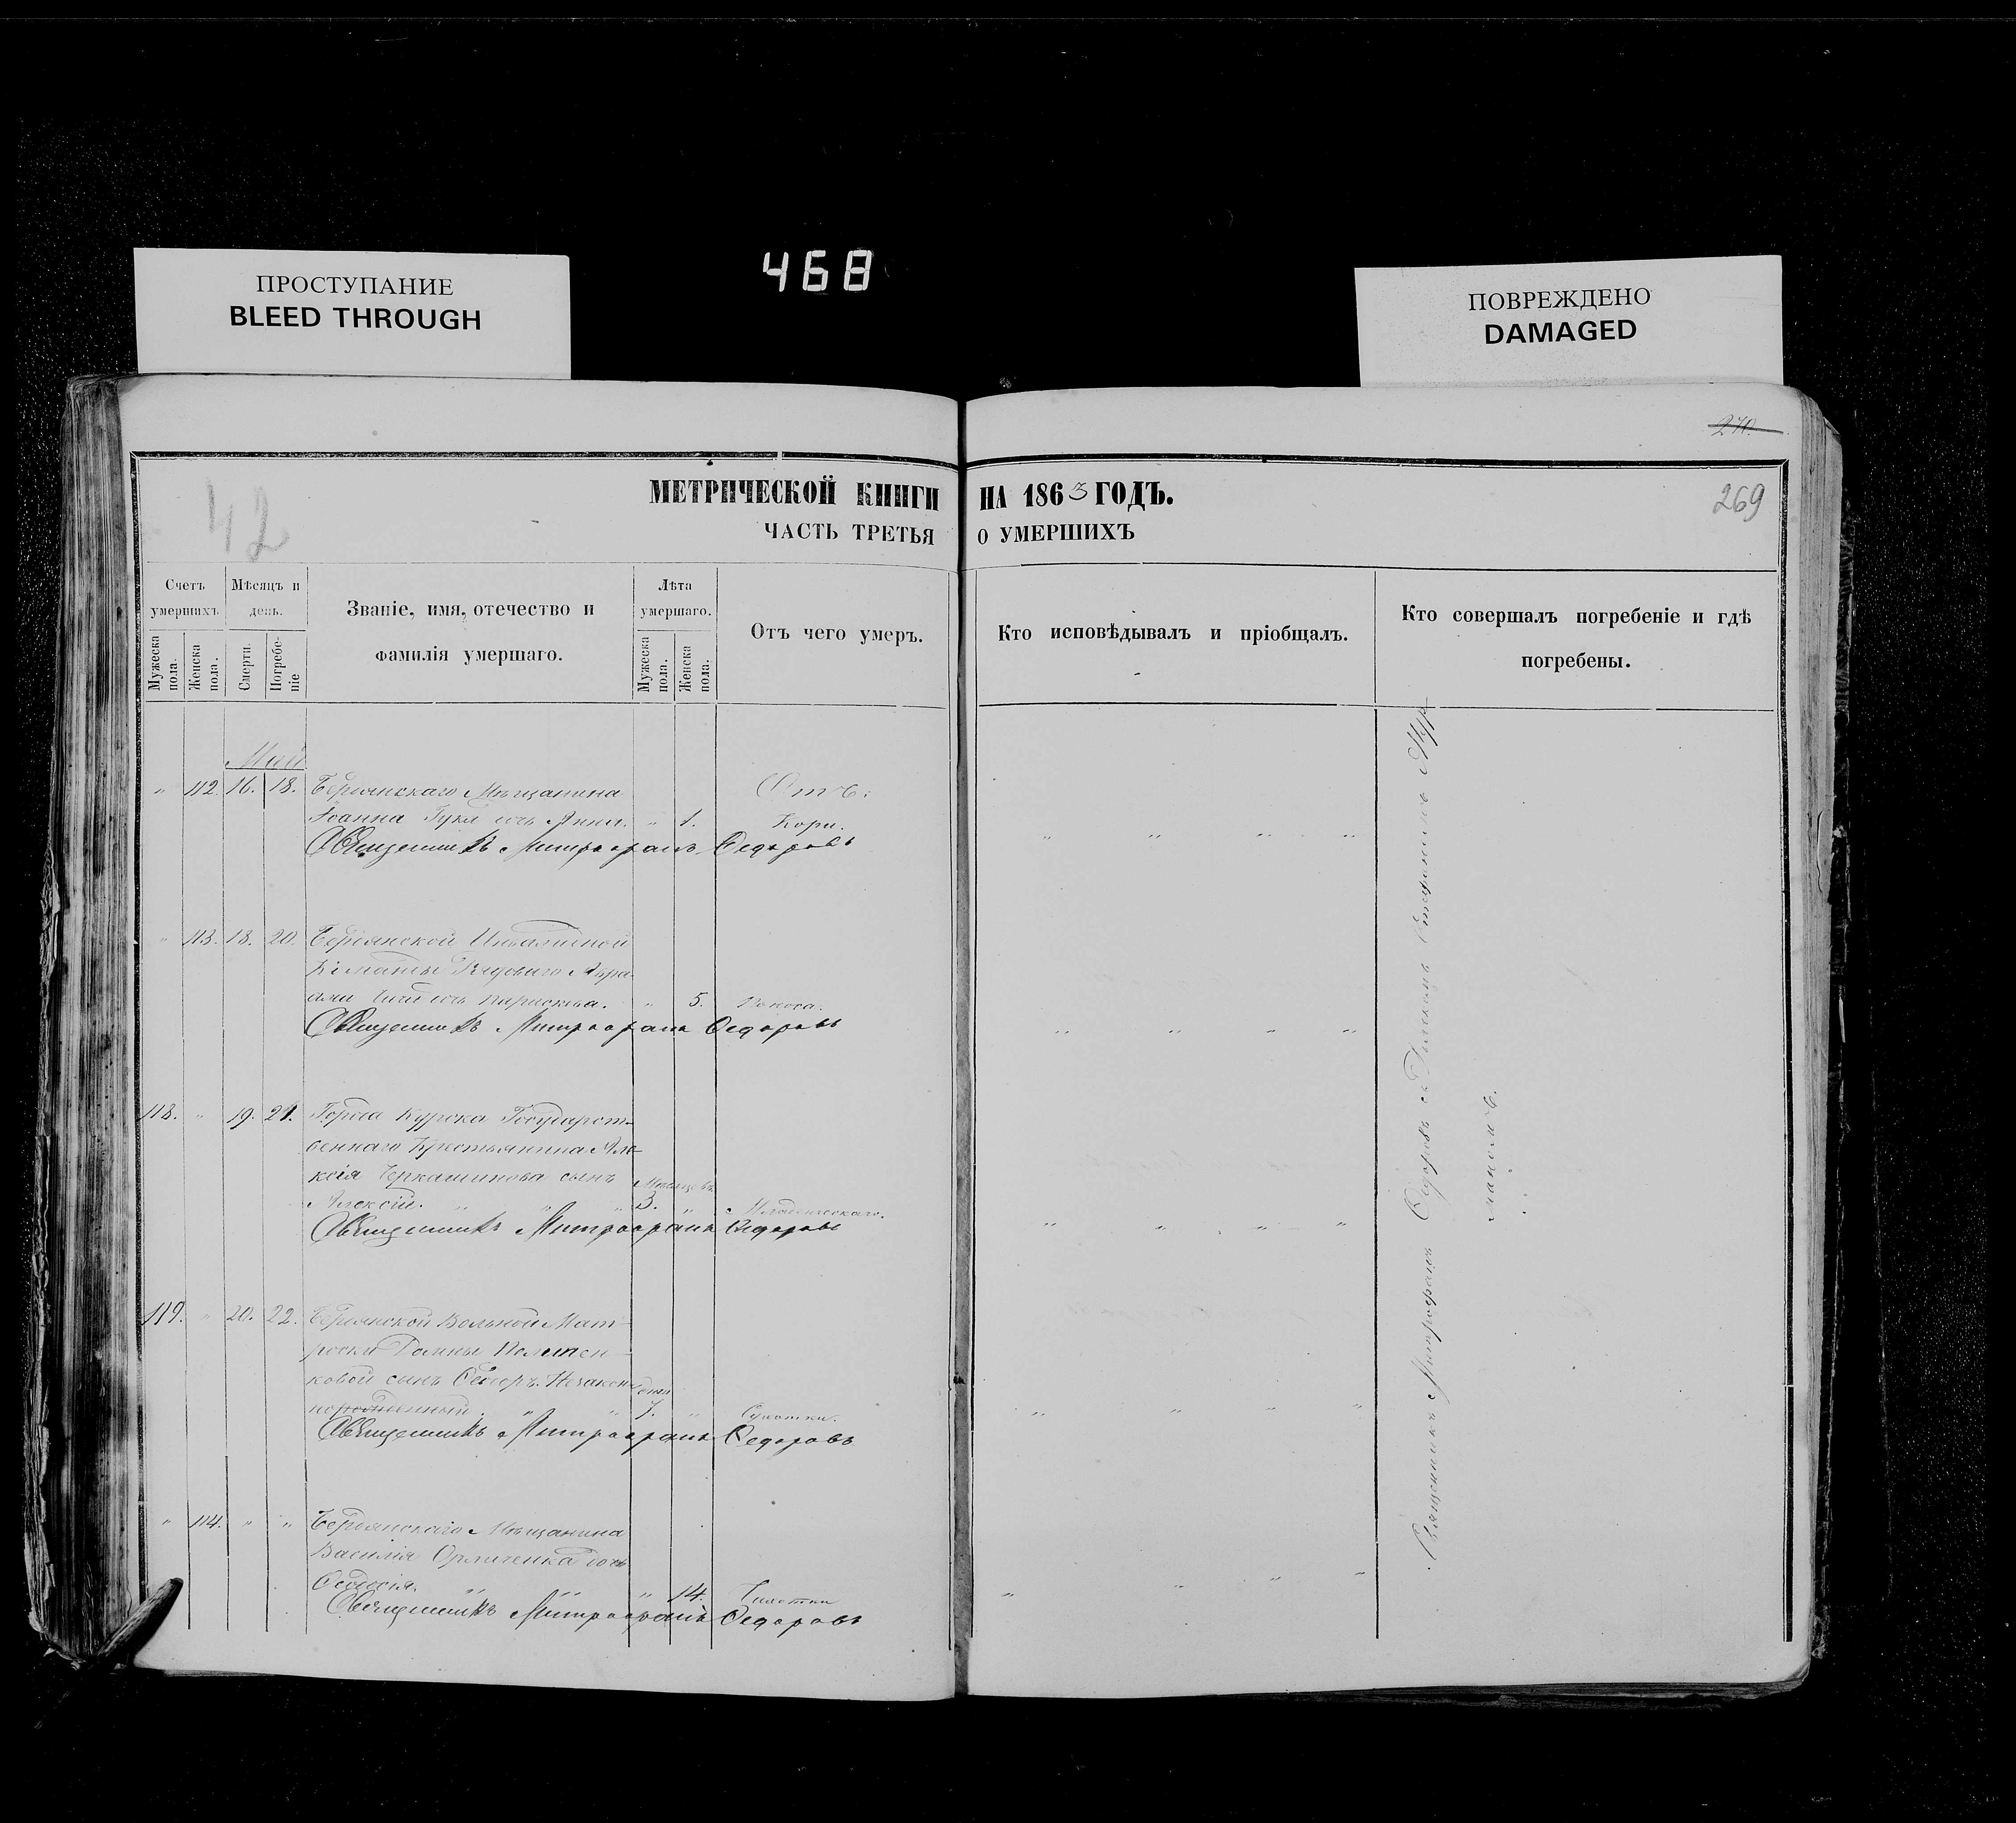 ПРОСТУПАНИЕ
BLEED THROUGH
468
ПОВРЕЖДЕНО
DAMAGED
270.
42
МЕТРИЧЕСКОЙ КНИГИ НА 1863 ГОДЪ.
269
ЧАСТЬ ТРЕТЬЯ О УМЕРШИХЪ
Счетъ умершихъ.
Мужеска пола.
Женска пола.
Мѣсяцъ и день.
Смерти.
Погребеніе
Званіе, имя, отечество и фамилія умершаго.
Лѣта умершаго.
Мужеска пола.
Женска пола.
Отъ чего умеръ.
Кто исповѣдывалъ и пріобщалъ.
Кто совершалъ погребеніе и гдѣ погребены.
Май
" 112. 16. 18. Бердянскаго Мѣщанина Отъ:
Іоанна дочь Анна. " 1. Кори.
Священникъ Митрофанъ Федоровъ
" 113. 18. 20. Бердянской Инвалидной
Команды Рядоваго Авра-
амія дочь Параскева. " 5. Поноса.
Священникъ Митрофанъ Федоровъ
118. " 19. 21. Города Курска Государст-
веннаго Крестьянина Але-
ксія Черкашинова сынъ Мѣсяцовъ
Алексій. " " " 3. " Младенческаго.
Священникъ Митрофанъ Федоровъ
119. " 20. 22. Бердянской Вольной Мат-
роски Домны
ковой сынъ Федоръ. Незакон- дней
норожденный. " " 7. " Сухотки.
Священникъ Митрофанъ Федоровъ
" 114. " " Бердянскаго Мѣщанина
Василія дочь
Феодосія. " " " 14. Чахотки
Священникъ Митрофанъ Федоровъ
Священникъ Митрофанъ Федоровъ съ Дьякономъ Стефаномъ